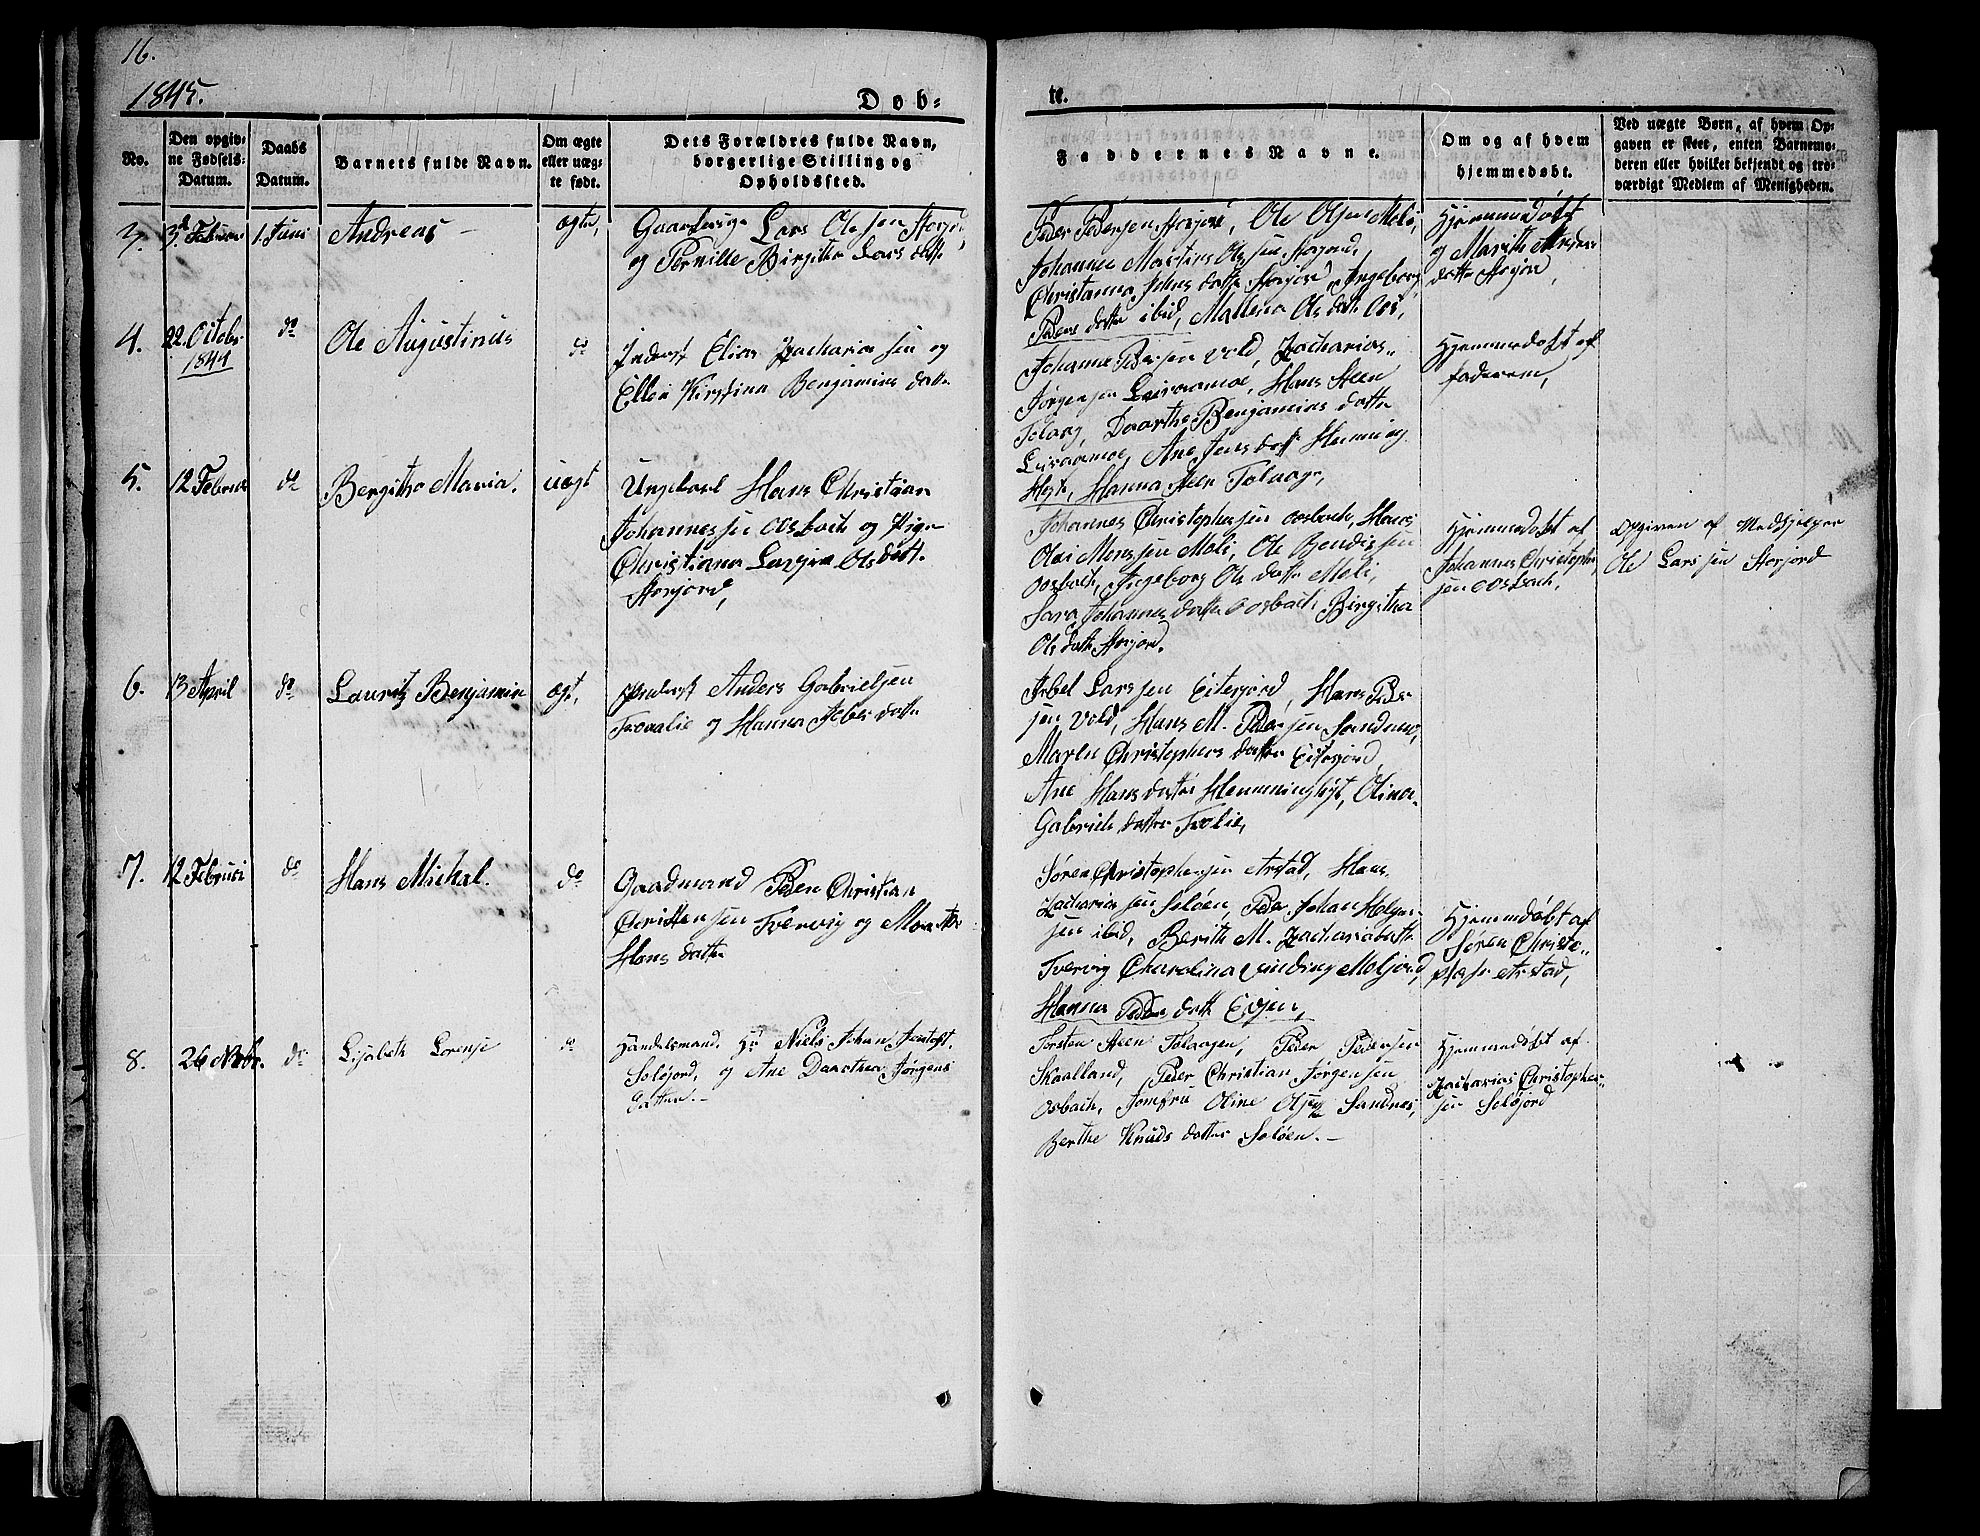 16.
1845.
Døb-
te.
No.
Den opgiv-
ne Fødsels-
Datum.
Daabs
Datum.
Barnets fulde Navn.
Om ægte
eller uæg-
te født.
Dets Forældres fulde Navn,
borgerlige Stilling og
Opholdssted.
Faddernes Navne.
Om og af hvem
hjemmedøbt.
Ved uægte Børn, af hvem Op-
gaven er skeet, enten Barnemo-
deren eller hvilket bekjendt og tro-
værdigt Medlem af Menigheden.
3. 3d Februar 1. Juni Andreas ægte,
Lars Olsen Storjord,
og Pernille Birgitha Larsdatter
Peder Pedersen Storjord, Ole Olsen Meli,
Johannes Martinus Olsen Storjord,
Christianna Johnsdatter Storjord, Ingeborg
Pedersdatter ibid, Mallena Olsdatter Oos,
Hjemmedøbt
og Marith
datter Storjord,
4. 22. Octobr
1844
do Ole Augustinus do
Inderst Elias Zachariasen og
Ellen Kirstina Benjamins datter
Johannes Pedersen Vold, Zacharias
Jørgensen Leiraamoe, Hans Steen
Tolaag, Daarthe Benjamins datter
Leiraamoe, Ane Jensdatter Hemming
Høgt, Hanna Steen Tolaag,
Hjemmedøbt af
faderen,
5. 12 Februar do Bergitha Maria. uægt
Ungekarl Hans Christian
Johannessen Oosbach og Pige
Christianna Olsdatt.
Storjord,
Johannes Christophersen Oosbach, Hans
Olai Monssen Meli, Ole Bendixsen
Oosbach, Ingeborg Olsdatter Meli,
Sara Johannesdatter Oosbach, Birgitha
Olsdatter Storjord.
Hjemmedøbt af
Johannes Christopher-
sen Oosbach.
Opgiven af Medhjelper
Ole Larssen Storjord
6. 13 April do Lauritz Benjamin ægt,
Inderst Anders Gabrielsen
og Hanna datter
Larssen Eiterjord, Hans Peder-
sen Vold, Hans M. Pedersen Sandmo,
Maren Christophersdatter Eiterjord,
Ane Hansdatter Hemminghøgt, Olina
Gabriels datter Trolie,
7. 12 Februar do Hans Michal. do
Gaadmand Peder Christian
Christensen Tvervig og
Hansdatter
Søren Christophersen Arstad, Hans
Zachariassen Soløen, Peder Johan Holger-
sen ibid, Berith M. Zachariasdatter
Tvervig, Charolina Vinding Moljord,
Hanna Peders datter Evjen,
Hjemmedøbt af
Søren Christo-
phersen Arstad,
8. 26 Novbr. do Lisabeth Lorense do
Handelsmand, Hr Niels Johan Jentoft,
Soløjord, og Ane Dorothea Jørgens
datter. -
Torsten Steen Tolaagen, Peder Pedersen
Skaalland, Peder Christian Jørgensen
Osbach, Jomfru Oline Olsen Sandnes,
Berthe Knudsdatter Soløen. -
Hjemmedøbt af
Zacharias Christopher-
sen Soløjord